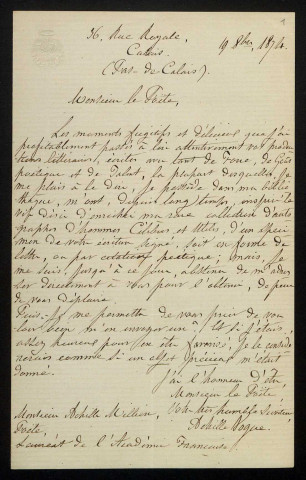 36, Rue Royale,
Calais.
(Pas-de-Calais).
19 8bre 1874.
Monsieur le Poète,
Les moments fugitifs et délicieux que j'ai
profitablement passés à lire attentivement vos produc
tions littéraires, écrites avec tant de Goût, de Génie
poétique et de Talent, la plupart desquelles, je
me plais à le dire, je possède dans ma biblio
thèque, m'ont, depuis longtemps, inspiré le
vif désir d'enrichir ma collection d'auto
graphes d'hommes Célèbres et Utiles, d'un spéci
men de votre écriture signé, soit en forme de
lettre, ou par citation poétique; mais, je
me suis, jusqu'à ce jour, abstenu de m'adres
ser directement à Vous pour l'obtenir, de peur
de vous déplaire.
je me permettre de vous prier de vou
loir bien m'en envoyer un. Si j'étais,
assez heureux pour en être favorisé, je le considé
rerais comme si un effet précieux m'était
donné.
J'ai l'honneur d'être,
Monsieur le Poète,
Votre très humble Serviteur,
Achille
Monsieur Achille Millien,
Poète,
Lauréat de l'Académie Française.